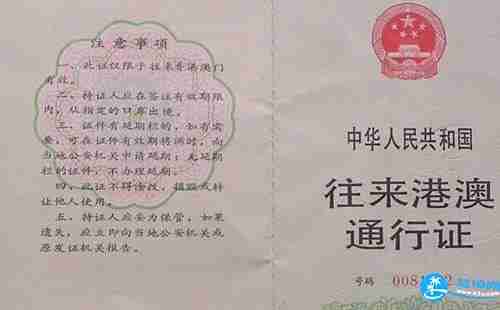 注意事项
一、此证仅限于往来香港澳门
有效。
二、持证人应在签证有效期限
内，从指定的口岸出境。
三、证件有延期栏的，如有需
要，可在证件有效期将满时，向
当地公安机关申请延期；无延期
栏的证件，不办理延期。
四、此证不得涂改、损毁或转
让他人使用。
五、持证人应妥为保管，如果
遗失，应立即向当地公安机关或
原发证机关报告。
中华人民共和国
往来港澳
通行证
号码